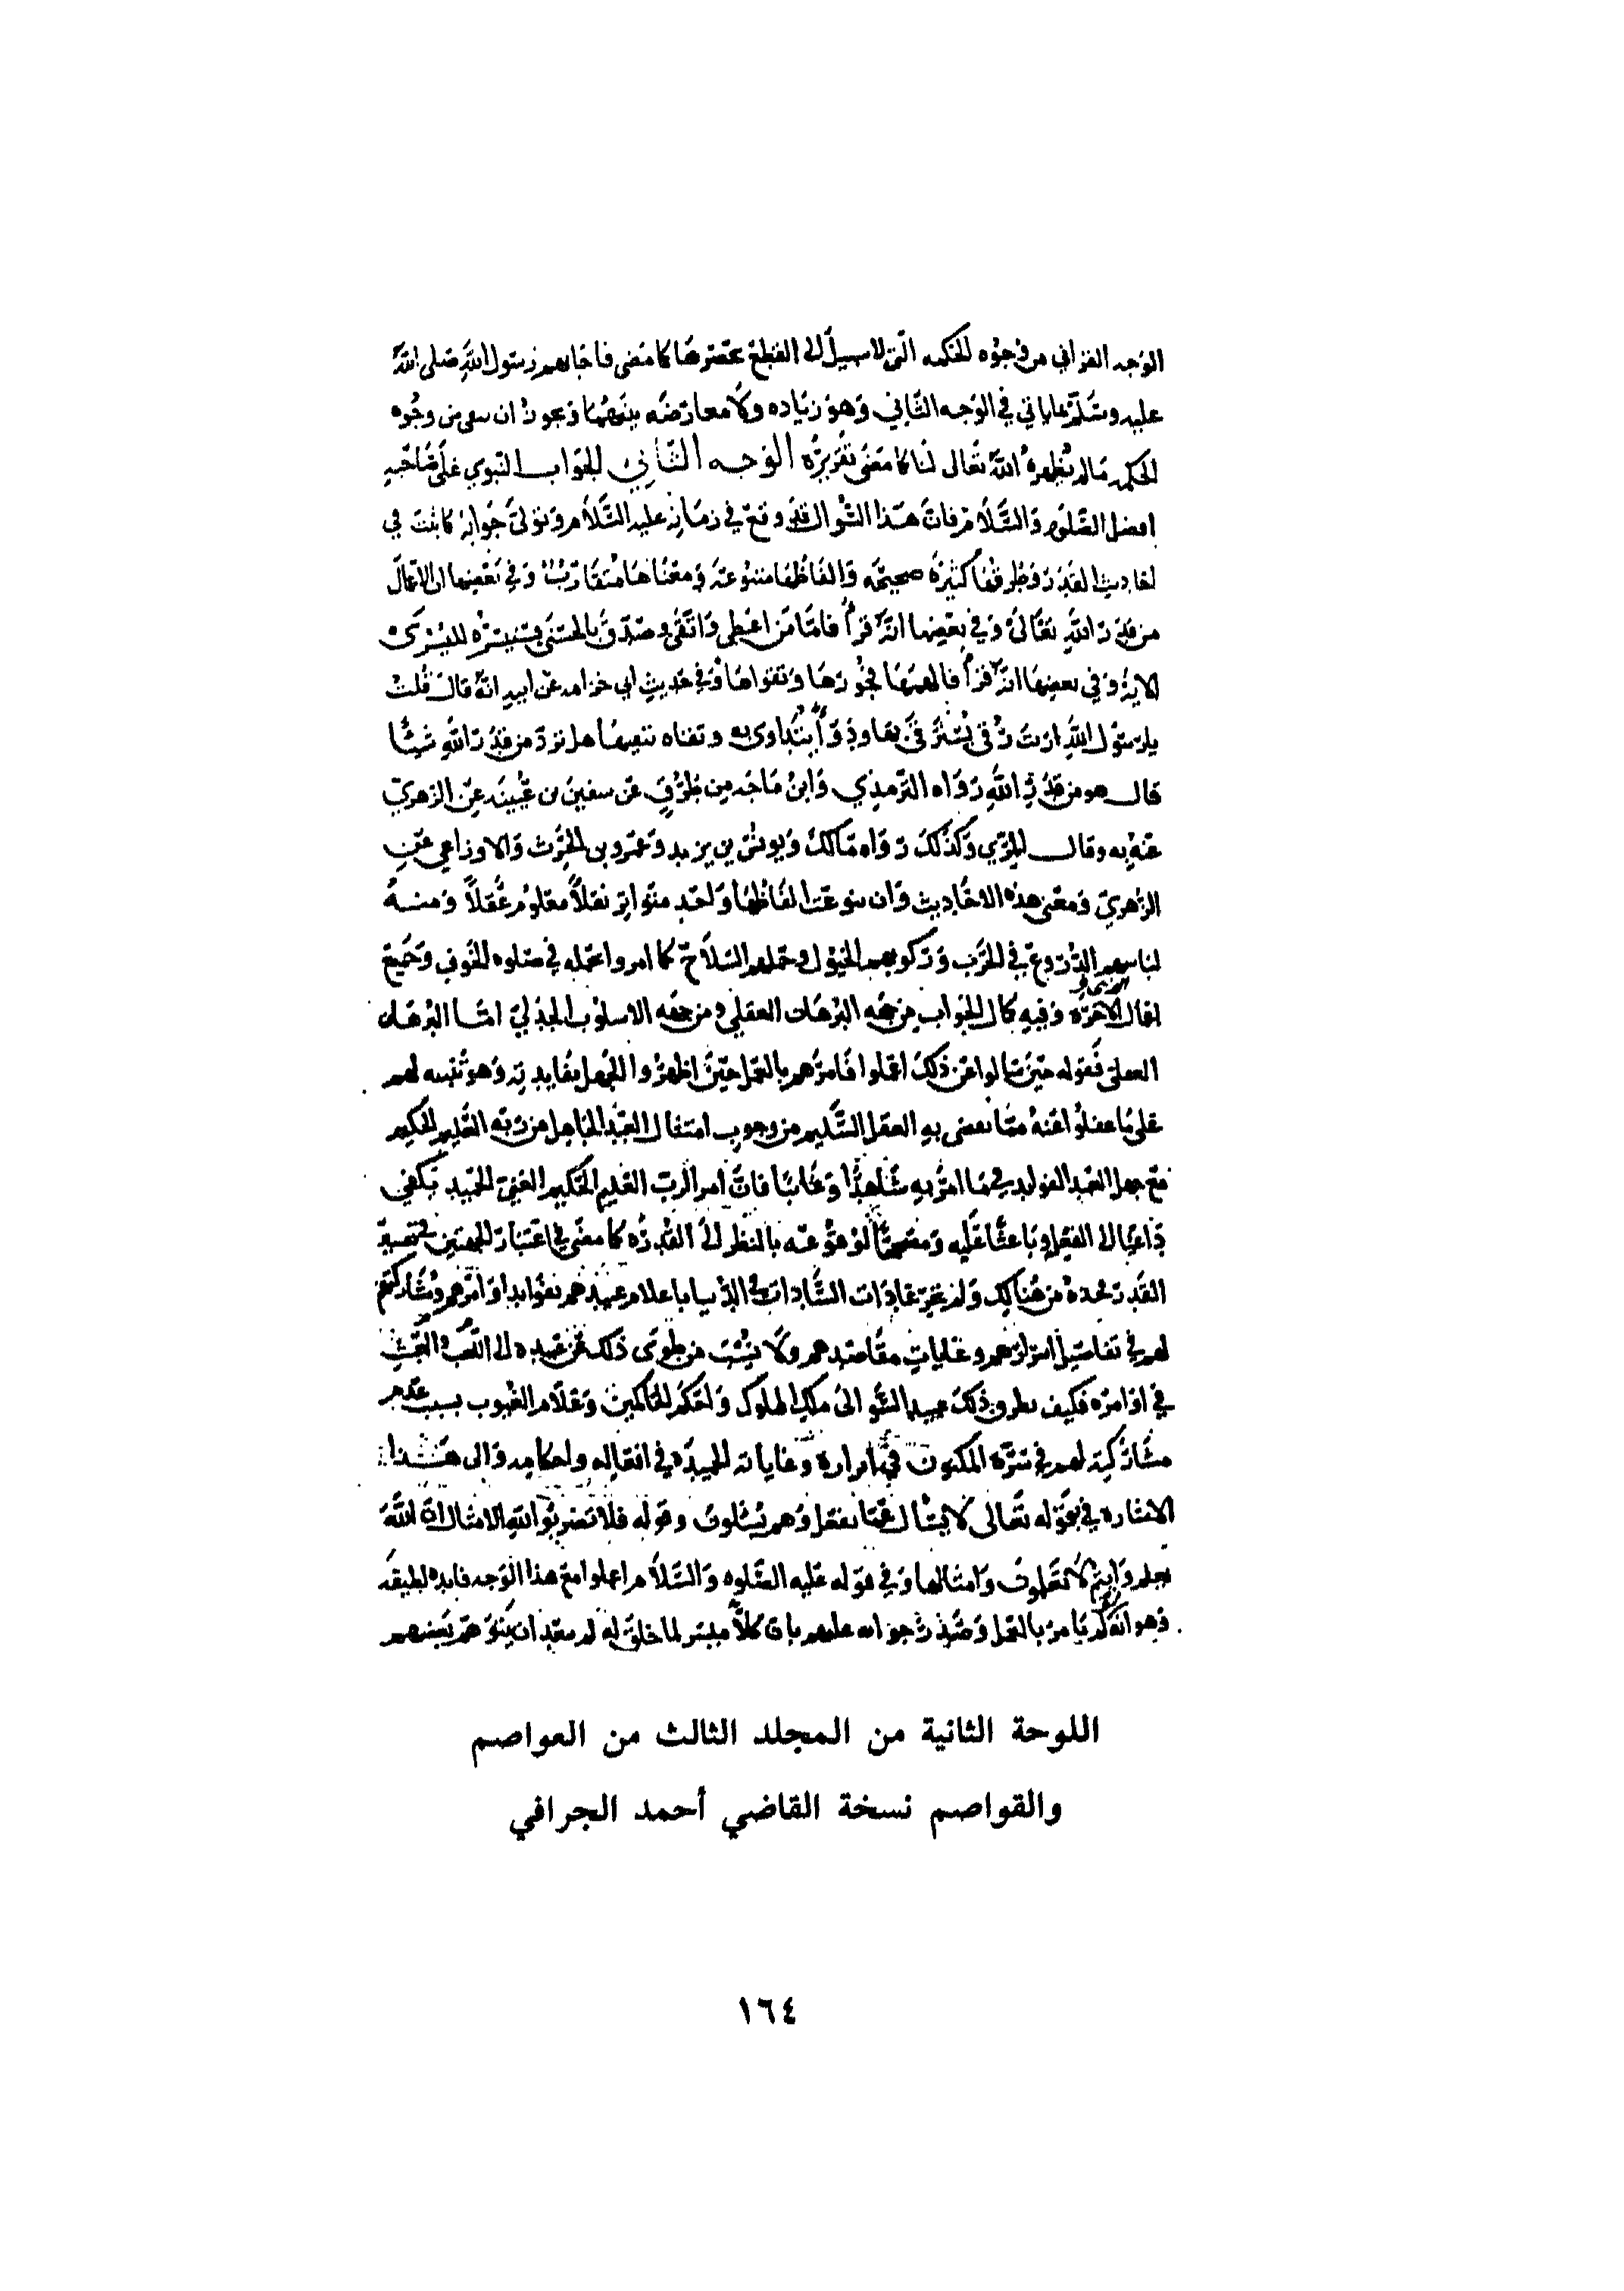 الوجه القرآني من وجوه الحكمه التي لا سبيل الى القطع بحصرها كما مضى فاجابهم رسول الله صلى الله
عليه وسلم بما ياتي في الوجه الثاني وهو زياده ولا معارضه بينهما وتجوز ان سقى من وجوه
الحكمه مالم يظهره الله تعالى لنا كما مضى تقريره الوجه الثاني الجواب النبوي على صاحبه
افضل الصلوه والسلام فان هذا السؤال قد وقع في زمانه عليه السلام وتولى جوابه كما ثبت في
احاديث القدر وطرقها كثيرة صحيحه والفاظها متنوعه ومعناها متقارب وفي بعضها ان الاعمال
من قدر الله تعالى وفي بعضها انه قرأ فاما من اعطى واتقى وصدق بالحسنى فسنيسره لليسرى
الايه وفي بعضها انه قرأ فالهمها فجورها وتقواها وفي حديث ابي خزامه عن ابيه انه قال قلت
يا رسول الله ارايت رقى نسترقى بها ودوآ نتداوى به وتقاه نتقيها هل ترد من قدر الله شيئا
قال هو من قدر الله رواه الترمذي وابن ماجه من طرق عن سفين بن عيينه عن الزهري
عنه به وقال المزي وكذلك رواه مالك ويونس بن يزيد وعمرو بن الحرث والاوزاعي عن
الزهري ومعنى هذه الاحاديث وان تنوعت الفاظها واحد متواتر نقلاً معلوم عقلاً ومنه
لباسهم الدروع في الحرب وركوبهم الخيول وحملهم السلاح كما امروا بحمله في صلوه الخوف وجميع
افعال الاخره وفيه كمال الجواب من جهه البرهان العقلي ومن جهه الاسلوب الجدلي اما البرهان
العقلي فقوله حين سالوا عن ذلك اعملوا فامرهم بالعمل حين اظهروا الجهل بفايدته وهو تنبيه لهم
على ما غفلوا عنه مما يقضي به العقل السليم من وجوب امتثال العبد الجاهل من ربه العليم الحكيم
مع جهل العبد الفوايد في ما امر به شاهدا وغايبا فان امر الرب العليم الحكيم الغني الحميد يكفي
داعيا الى الفعل وباعثا عليه ومصححا لوقوعه بالنظر الى القدره كما مضى في اعتبار الجهتين
القدر وحده من هنالك ولم تجر عادات السادات في الدنيا باعلام عبيدهم بفوايد اوامرهم ومشاركتهم
لهم في تفاصيل اسرارهم وغايات مقاصدهم ولا ينسب من طوى ذلك عن عبيده الى اللعب والعبث
في اوامره فكيف يطرق ذلك عبيد السو الى ملك الملوك واحكم الحاكمين وعلام الغيوب بسبب عدم
مشاركته لهم في سره المكنون في اقداره وغاياته الحميده في افعاله واحكامه والى هذا
الاشاره في بقوله تعالى لا يسال عما يفعل وهم يسئلون وقوله فلا تضربوا لله الامثال ان الله
يعلم وانتم لا تعلمون وامثالها وفي قوله عليه الصلوه والسلام اعملوا مع هذا الوجه فايده لطيفه
وهو انه لم يامر بالعمل وصدر جوابه عليهم بان كلاً ميسر لما خلق له لم يبعد ان يتوهم بعضهم
اللوحة الثانية من المجلد الثالث من العواصم
والقواصم نسخة القاضي أحمد الجرافي
١٦٤